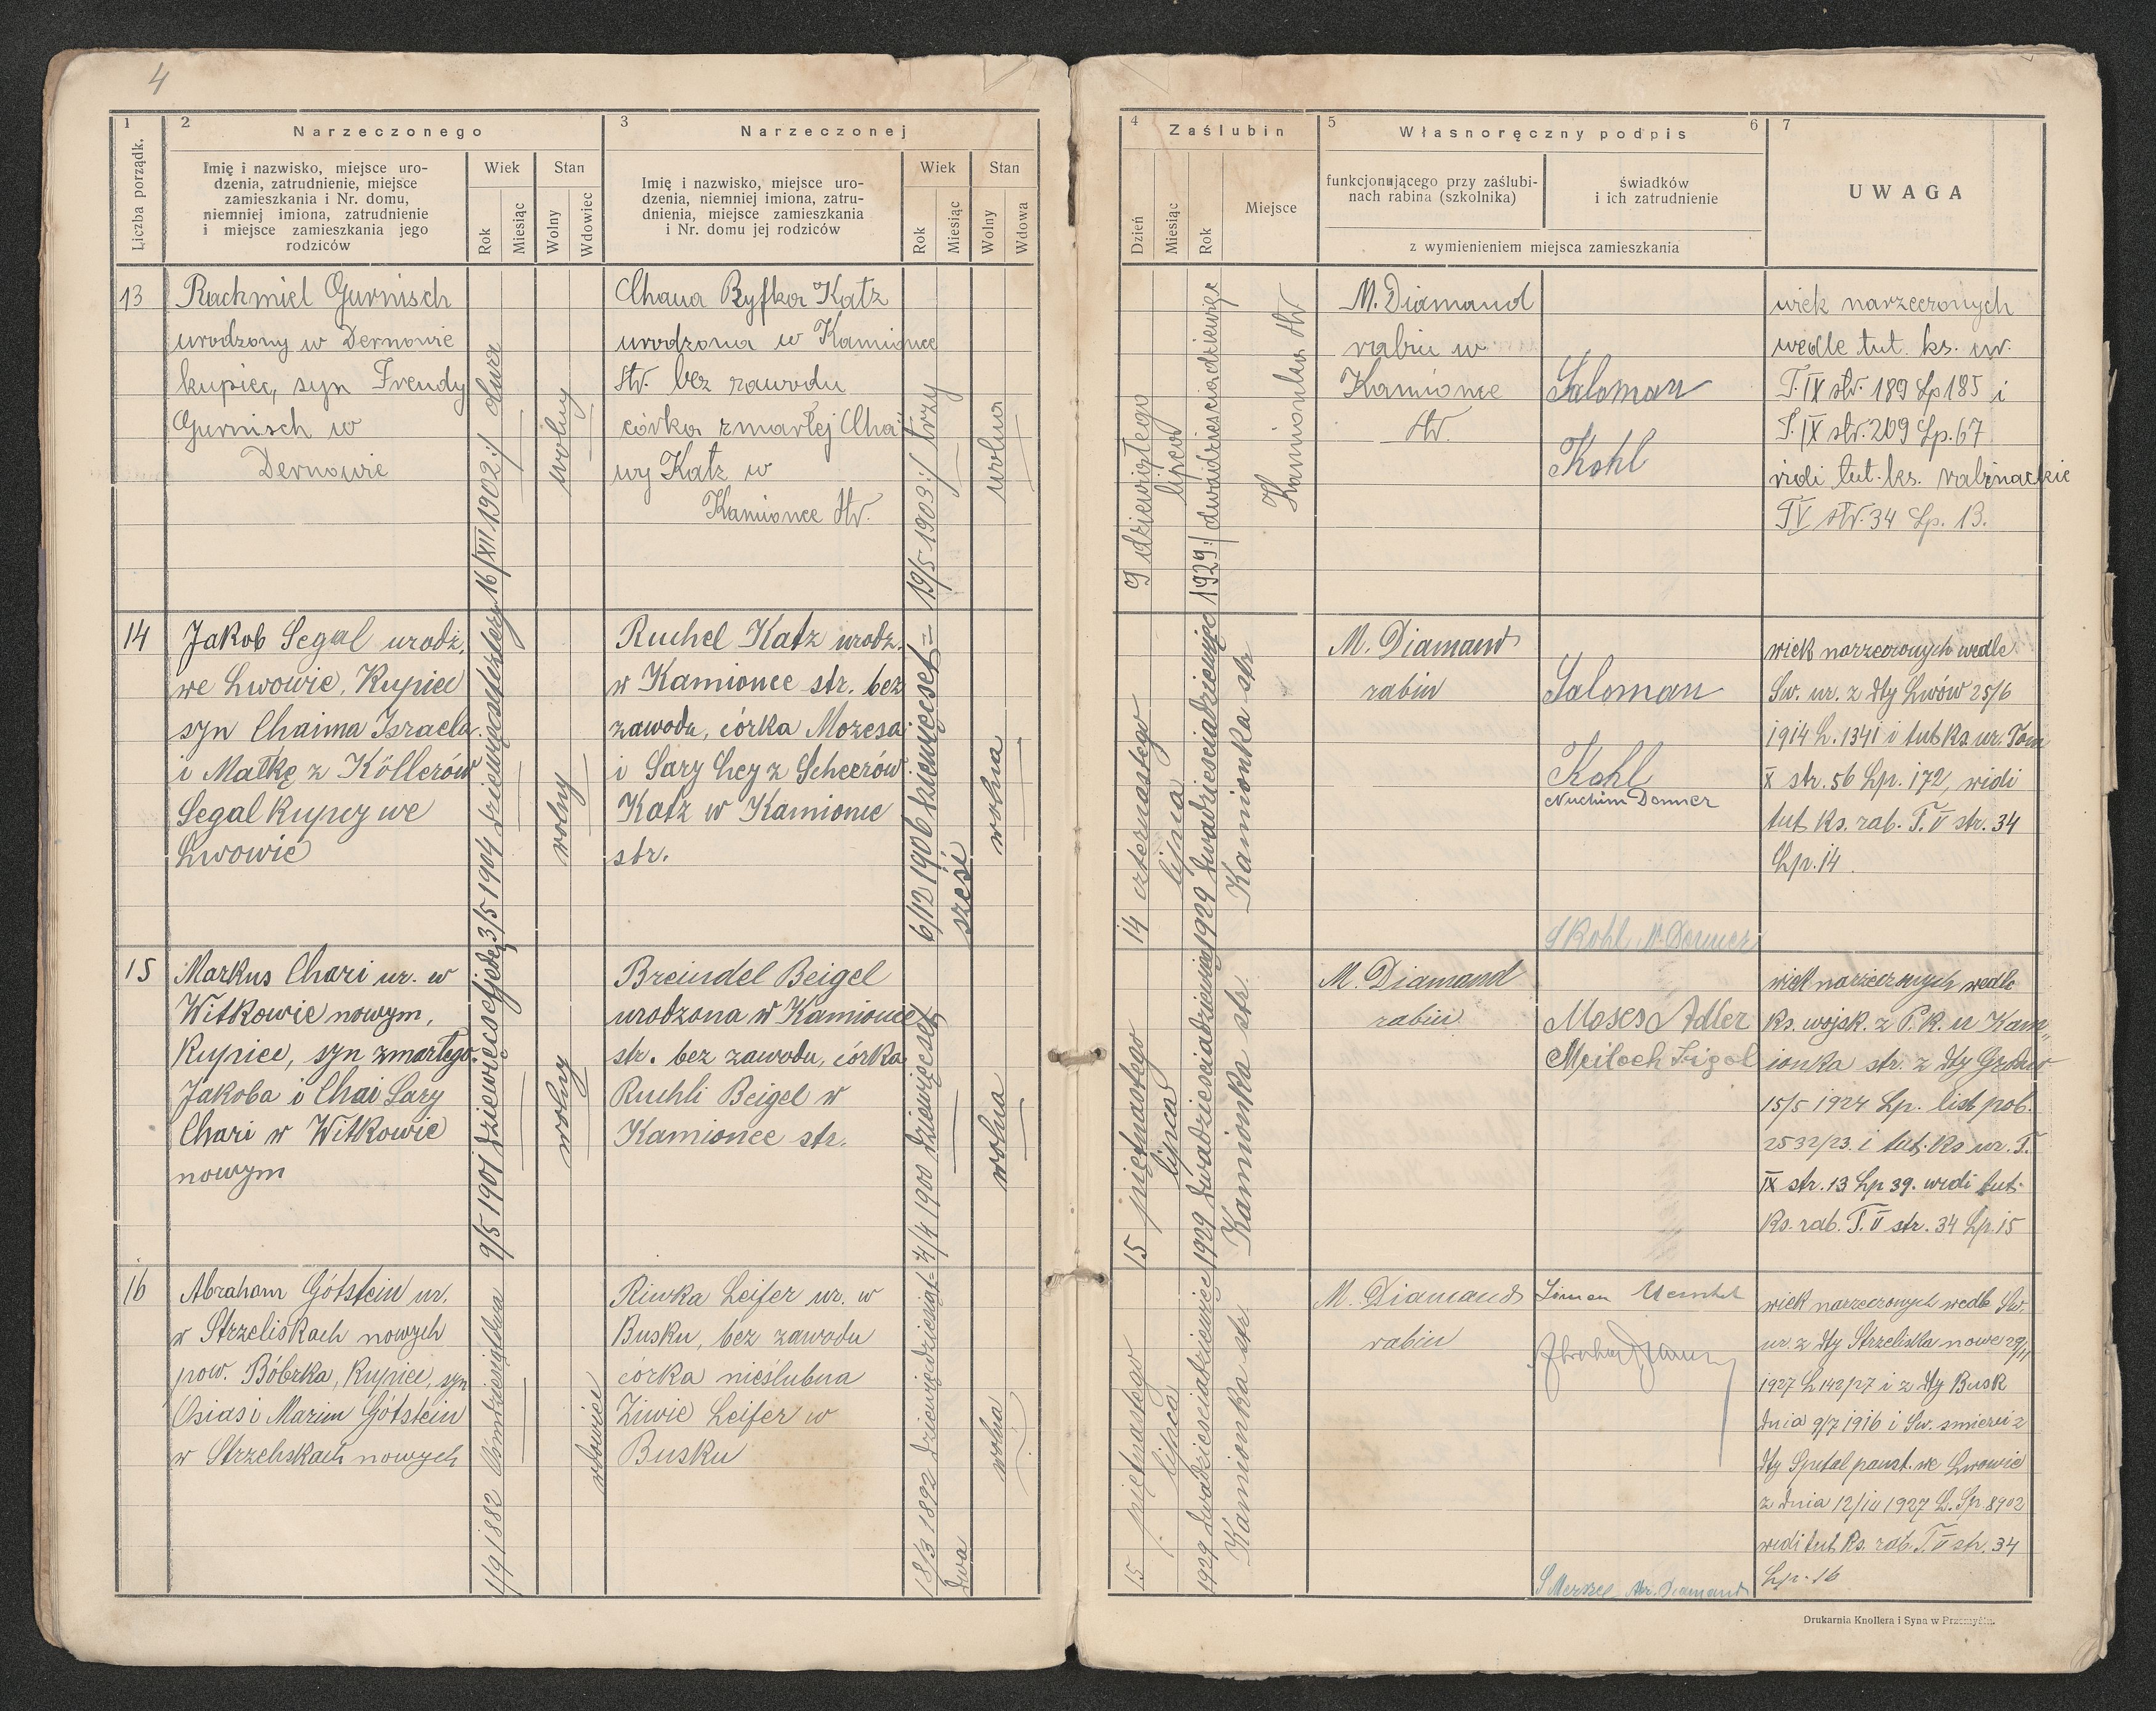 4
1
2
Narzeczonego
3
Narzeczonej
Liczba porządk.
Imię i nazwisko, miejsce uro-
dzenia, zatrudnienie, miejsce
zamieszkania i Nr. domu,
niemniej imiona, zatrudnienie
i miejsce zamieszkania jego
rodziców
Wiek
Rok
Miesiąc
Stan
Wolny
Wdowiec
Imię i nazwisko, miejsce uro-
dzenia, niemniej imiona, zatru-
dnienia, miejsce zamieszkania
i Nr. domu jej rodziców
Wiek
Rok
Miesiąc
Stan
Wolny
Wdowa
4
Zaślubin
5
Własnoręczny podpis
6
7
Dzień
Miesiąc
Rok
Miejsce
funkcjonującego przy zaślubi-
nach rabina (szkolnika)
świadków
i ich zatrudnienie
z wymienieniem miejsca zamieszkania
UWAGA
13
Rachmiel Gurnisch
urodzony w Dernowie
kupiec, syn Frendy
Gurnisch w
Dernowie
16/XII 1902:/ dwa
wolny
Chawa Ryfka Katz
urodzona w Kamionce
str. bez zawodu
córka zmarłej Cha
wy Katz w
Kamionce str.
19/5 1903:/ trzy
wolna
9 dziewiątego
lipca
1929:/ dwadzieścia dziewięć
Kamionka str
M. Diamand
rabin w
Kamionce
str.
Saloman
Kohl
wiek narzeczonych
wedle tut. ks. ur.
T. IX str. 189 Lp 185 i
T. IX str. 209 Lp. 67
vidi tut. ks. rabinackie
T V str. 34 Lp. 13.
14
Jakob Segal urodz.
we Lwowie, Kupiec
syn Chaima Israela
i Małkę z Köllerów
Segal kupcy we
Lwowie
3/5 1904 dziewięćset cztery
wolny
Ruchel Katz urodz.
w Kamionce str. bez
zawodu, córka Mozesa
i Sary Ley z Scheerów
Katz w Kamionce
str.
6/12 1906 dziewięćset =
sześć
wolna
14 czternastego
lipca
1929 dwadzieścia dziewięć
Kamionka str
M. Diamand
rabin
Saloman
Kohl
Nuchim Donner
S Kohl N. Donner
wiek narzeczonych wedle
Św. ur. z dty Lwów 25/6
1914 L. 1341 i tut ks ur. Tom
X str. 56 Lp. 172, widi
tut ks. rab. T. V str. 34
Lp. 14.
15
Markus Chari ur. w
Witkowie nowym,
Kupiec, syn zmarłego
Jakoba i Chai Sary
Chari w Witkowie
nowym
9/5 1901 dziewięćset jeden
wolny
Breindel Beigel
urodzona w Kamionce
str. bez zawodu, córka
Ruchli Beigel w
Kamionce str.
4/4 1900 dziewięćset
wolna
15 piętnastego
lipca
1929 dwadzieścia dziewięć
Kamionka str.
M. Diamand
rabin
Moses Adler
Meiloch
wiek narzeczonych wedle
ks. wojsk. z P. K. U Kam„
ionka str. z dty
15/5 1924 Lp. list pob.
2532/23. i tut. ks ur. T.
IX str. 13 Lp 39. widi tut.
ks. rab. T. V str. 34 Lp. 15
16
Abraham Götstein ur.
w Strzeliskach nowych
pow. Bóbrka, kupiec, syn
Osias i Mariem Götstein
w Strzeliskach nowych
1/9 1882 ośmdziesiąt dwa
wdowiec
Riwka Leifer ur. w
Busku, bez zawodu
córka nieślubna
Ziwie Leifer w
Busku
18/3 1892 dziewięćdziesiąt=
dwa
wolna
15 piętnastego
lipca
1929 dwadzieścia dziewięć
Kamionka str
M. Diamand
rabin
Simon
Abraham
S Abr. Diamand
wiek narzeczonych wedle Św.
ur. z dty Strzeliska nowe 29/11
1927 L 142/27 i z dty Busk
dnia 9/7 1916 i Św. śmierci z
dty Szpital panst. we Lwowie
z dnia 1927 L. Sp. 8902
widi tut ks. rab. T. V str. 34
Lp. 16
Drukarnia Knollera i Syna w Przemyślu.